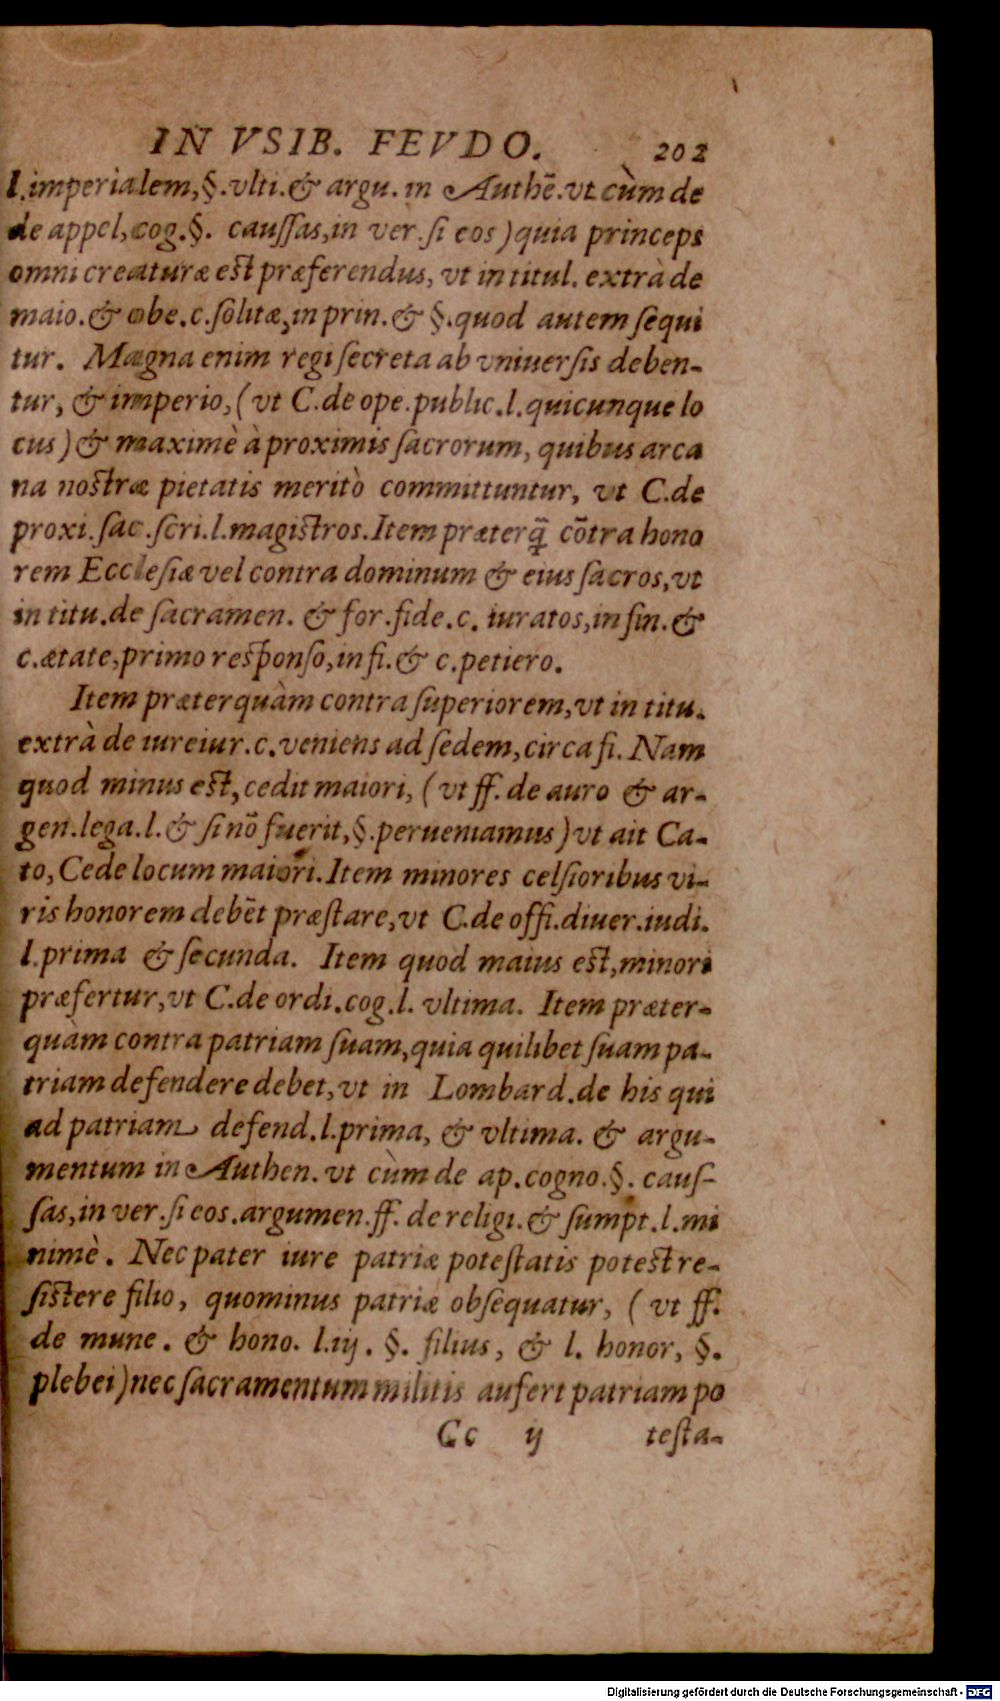 IN VSIB. FEVDO. 202
l.imperialem,§.vlti.& argu. in Authē.vt cùm de
de appel,cog.§. caussas,in ver.si eos)quia princeps
omni creaturæ est præferendus, vt in titul. extrà de
maio.& obe.c.solitæ,in prin.& §.quod autem sequi
tur. Magna enim regi secreta ab vniuersis deben-
tur, & imperio,(vt C.de ope.public.l.quicunque lo
cus)& maximè à proximis sacrorum, quibus arca
na nostræ pietatis meritò committuntur, vt C.de
proxi.sac.scri.l.magistros.Item præterq̃ cōtra hono
rem Ecclesiæ vel contra dominum & eius sacros,vt
in titu.de sacramen. & for.fide.c. iuratos,in fin.&
c.ætate,primo responso,in fi.& c.petiero.
Item præterquàm contra superiorem,vt in titu.
extrà de iureiur.c.veniens ad sedem,circa fi. Nam
quod minus est,cedit maiori, (vt ff. de auro & ar-
gen.lega.l.& si nō fuerit,§.perueniamus)vt ait Ca-
to,Cede locum maiori.Item minores celsioribus vi-
ris honorem debēt præstare,vt C.de offi.diuer.iudi.
l.prima & secunda. Item quod maius est,minori
præfertur,vt C.de ordi.cog.l. vltima. Item præter-
quàm contra patriam suam,quia quilibet suam pa-
triam defendere debet,vt in Lombard.de his qui
ad patriam defend.l.prima, & vltima. & argu-
mentum in Authen.vt cùm de ap.cogno.§. caus-
sas,in ver.si eos.argumen.ff. de religi.& sumpt.l.mi
nimè. Nec pater iure patriæ potestatis potest re-
sistere filio, quominus patriæ obsequatur, (vt ff.
de mune. & hono. l.ij. §. filius, & l. honor, §.
plebei)nec sacramentum militis aufert patriam po
Cc ij testa-
Digitalisierung gefördert durch die Deutsche Forschungsgemeinschaft - DFG